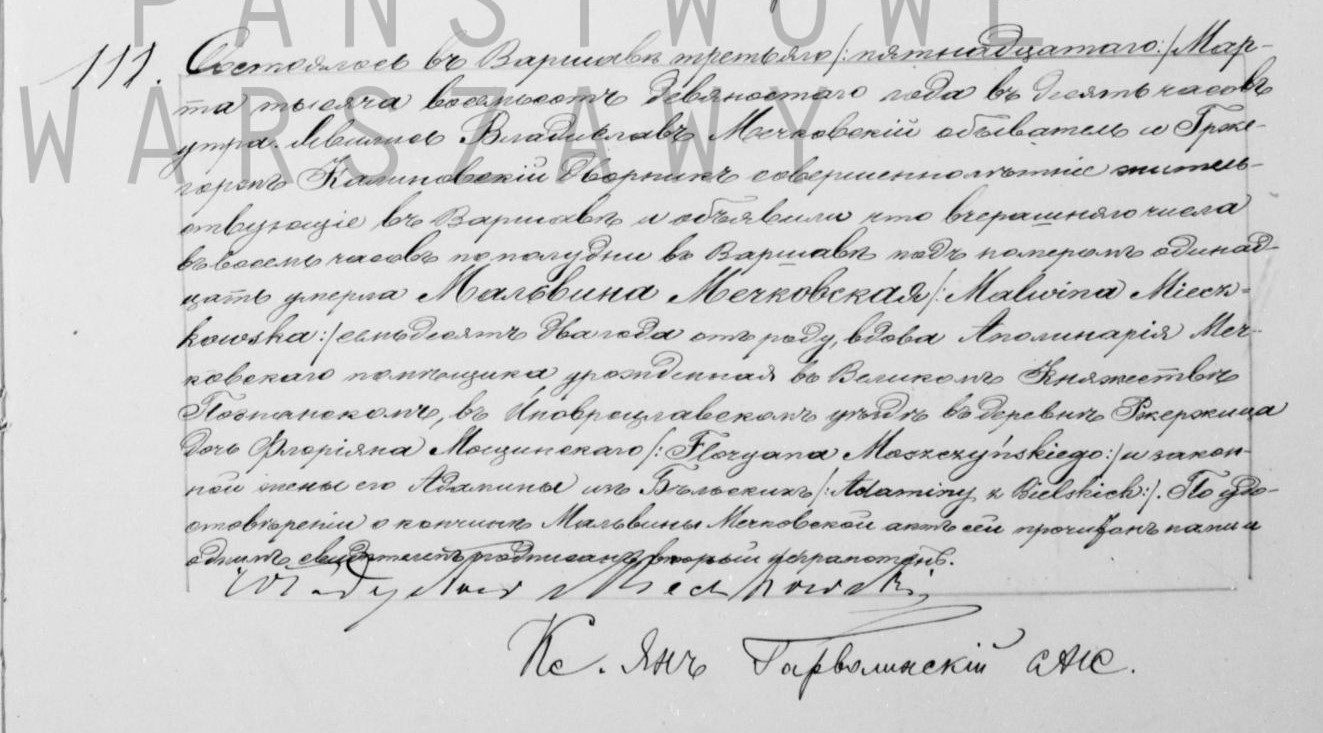 PAŃSTWOWE
WARSZAWY
111. Состоялось въ Варшавѣ третьяго /: пятнадцатаго :/ Мар-
та тысяча восемьсотъ девяностаго года въ десять часовъ
утра. Явились Владиславъ Мечковскій обыватель и Грже-
горжъ Калиновскій дворникъ совершеннолѣтніе житель-
ствующіе въ Варшавѣ и объявили что вчерашняго числа
въ восемь часовъ по полудни въ Варшавѣ подъ номеромъ одинад-
цать умерла Мальвина Мечковская /: Malwina Miecz-
kowska :/ семьдесятъ два года отъ роду, вдова Аполинарія Меч-
ковскаго помѣщика урожденная въ Великомъ Княжествѣ
Познанскомъ, въ Иновроцлавскомъ уѣздѣ въ деревнѣ Ржержица
дочь Флоріяна Мощинскаго /: Floryana Moszczyńskiego :/ и закон-
ной жены его Адамины изъ Бѣльскихъ /: Adaminy z Bielskich :/. По удо-
стовѣреніи о кончинѣ Мальвины Мечковской актъ сей прочитанъ нами и
однимъ свидѣтелемъ подписанъ, вторый неграмотенъ.
Władysław Mieczkowski
Кс. Янъ Гарволинскій САС.